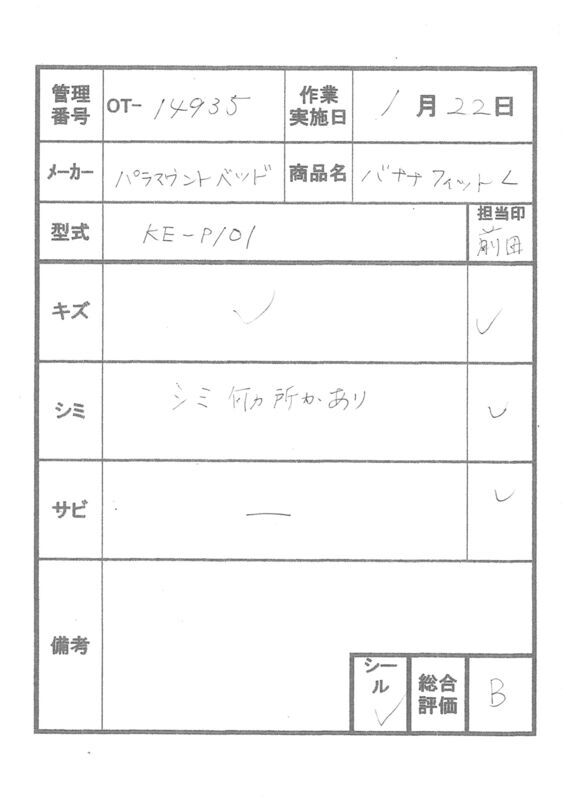 管理番号 OT- 14935 作業実施日 1月22日
メーカー パラマウントベッド 商品名 バナナフィットL
型式 KE-P101 担当印 前田
キズ ✓ ✓
シミ シミ何カ所かあり ✓
サビ — ✓
備考
シール ✓ 総合評価 B